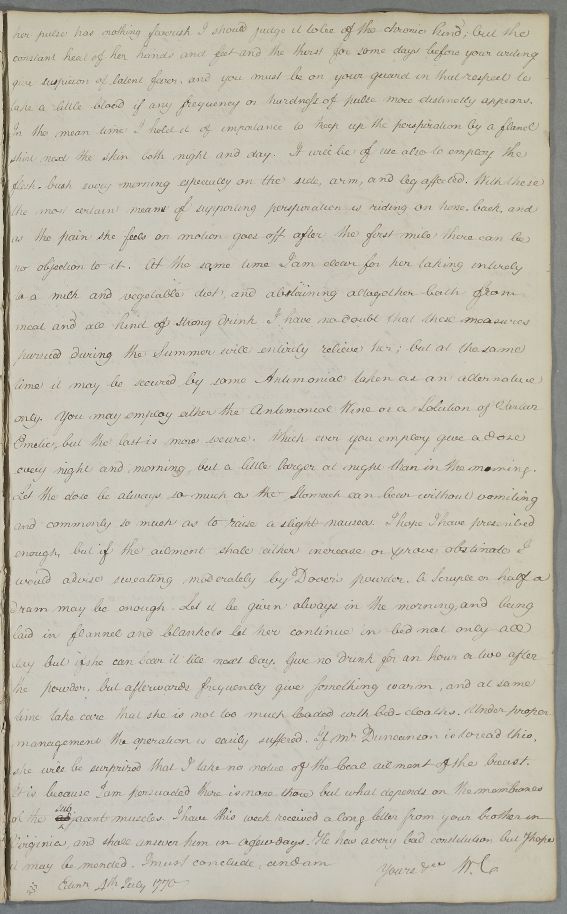 her pulse has nothing feverish I should judge it to be of the chronic kind; but the
constant heat of her hands and feet and the thirst for some days before your writing
give suspicion of latent fever. and you must be on your guard in that respect to
take a little blood if any frequency or hardness of pulse more distinctly appears.
In the mean time I hold it of importance to keep up the perspiration by a flanel
shirt next the skin both night and day. It will be of use also to employ the
flesh-brush every morning especially on the side, arm, and leg affected. With these
the most certain means of supporting perspiration is riding on horse back, and
as the pain she feels on motion goes off after the first mile there can be
no objection to it. At the same time I am clear for her taking intirely
to a milk and vegetable diet, and abstaining altogether both from
meat and all kind of strong Drink I have no doubt that these measures
pursued during the Summer will entirely relieve her; but at the same
time it may be secured by some Antimonial taken as an alternative
only. You may employ either the Antimonial Wine or a Solution of Tartar
Emetic, but the last is more secure. Which ever you employ give a dose
every night and morning, but a little larger at night than in the morning.
Let the dose be always so much as the Stomach can bear without vomiting
and commonly so much as to raise a slight nausea. I hope I have prescribed
enough, but if the ailment shall either increase or prove obstinate I
would advise sweating moderately by Dover's powder. A Scruple or half a
dram may be enough. Let it be given always in the morning, and being
laid in flannel and blankets let her continue in bed not only all
day but if she can bear it till next day. Give no drink for an hour or two after
the powder, but afterwards frequently give something warm, and at same
time take care that she is not too much loaded with bed-cloaths. Under proper
management the operation is easily suffered. If Mrs Duncanson is to read this,
she will be surprized that I take no notice of the local ailment of the breast.
It is because I am persuaded there is none there but what depends on the membranes
of the subjacent muscles. I have this week received a long letter from your brother in
Virginia, and shall answer him in a few days. He has a very bad constitution but I hope
it may be mended. I must conclude, and am
Yours &ca W.C
Edinr 4th July 1770